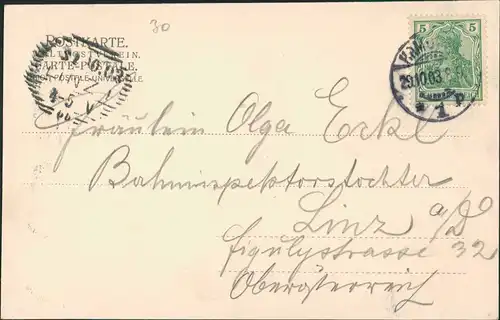 30
POSTKARTE.
WELTPOSTVEREIN.
CARTE POSTALE.
UNION POSTALE UNIVERSELLE.
5 5
29.10.03
* 1 P.
Fräulein Olga Eckl
Bahninspektorstochter
Linz a/D
Figulystrasse 32
Oberösterreich